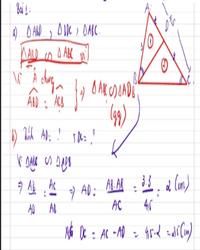 Bài 1.
a) ΔABD, ΔBDC, ΔABC.
ΔABD ∽ ΔABC
Vì Â chung
ABD = ACB
} ⇒ ΔABC ∽ ΔADB
(gg)
b) Tính AD = ? DC = ?
Vì ΔABC ∽ ΔADB
⇒ AB/AD = AC/AB ⇒ AD = AB.AB/AC = 3.3/4,5 = 2 (cm)
DC = AC - AD = 4,5 - 2 = 2,5 (cm)
A
B
D
C
1
2